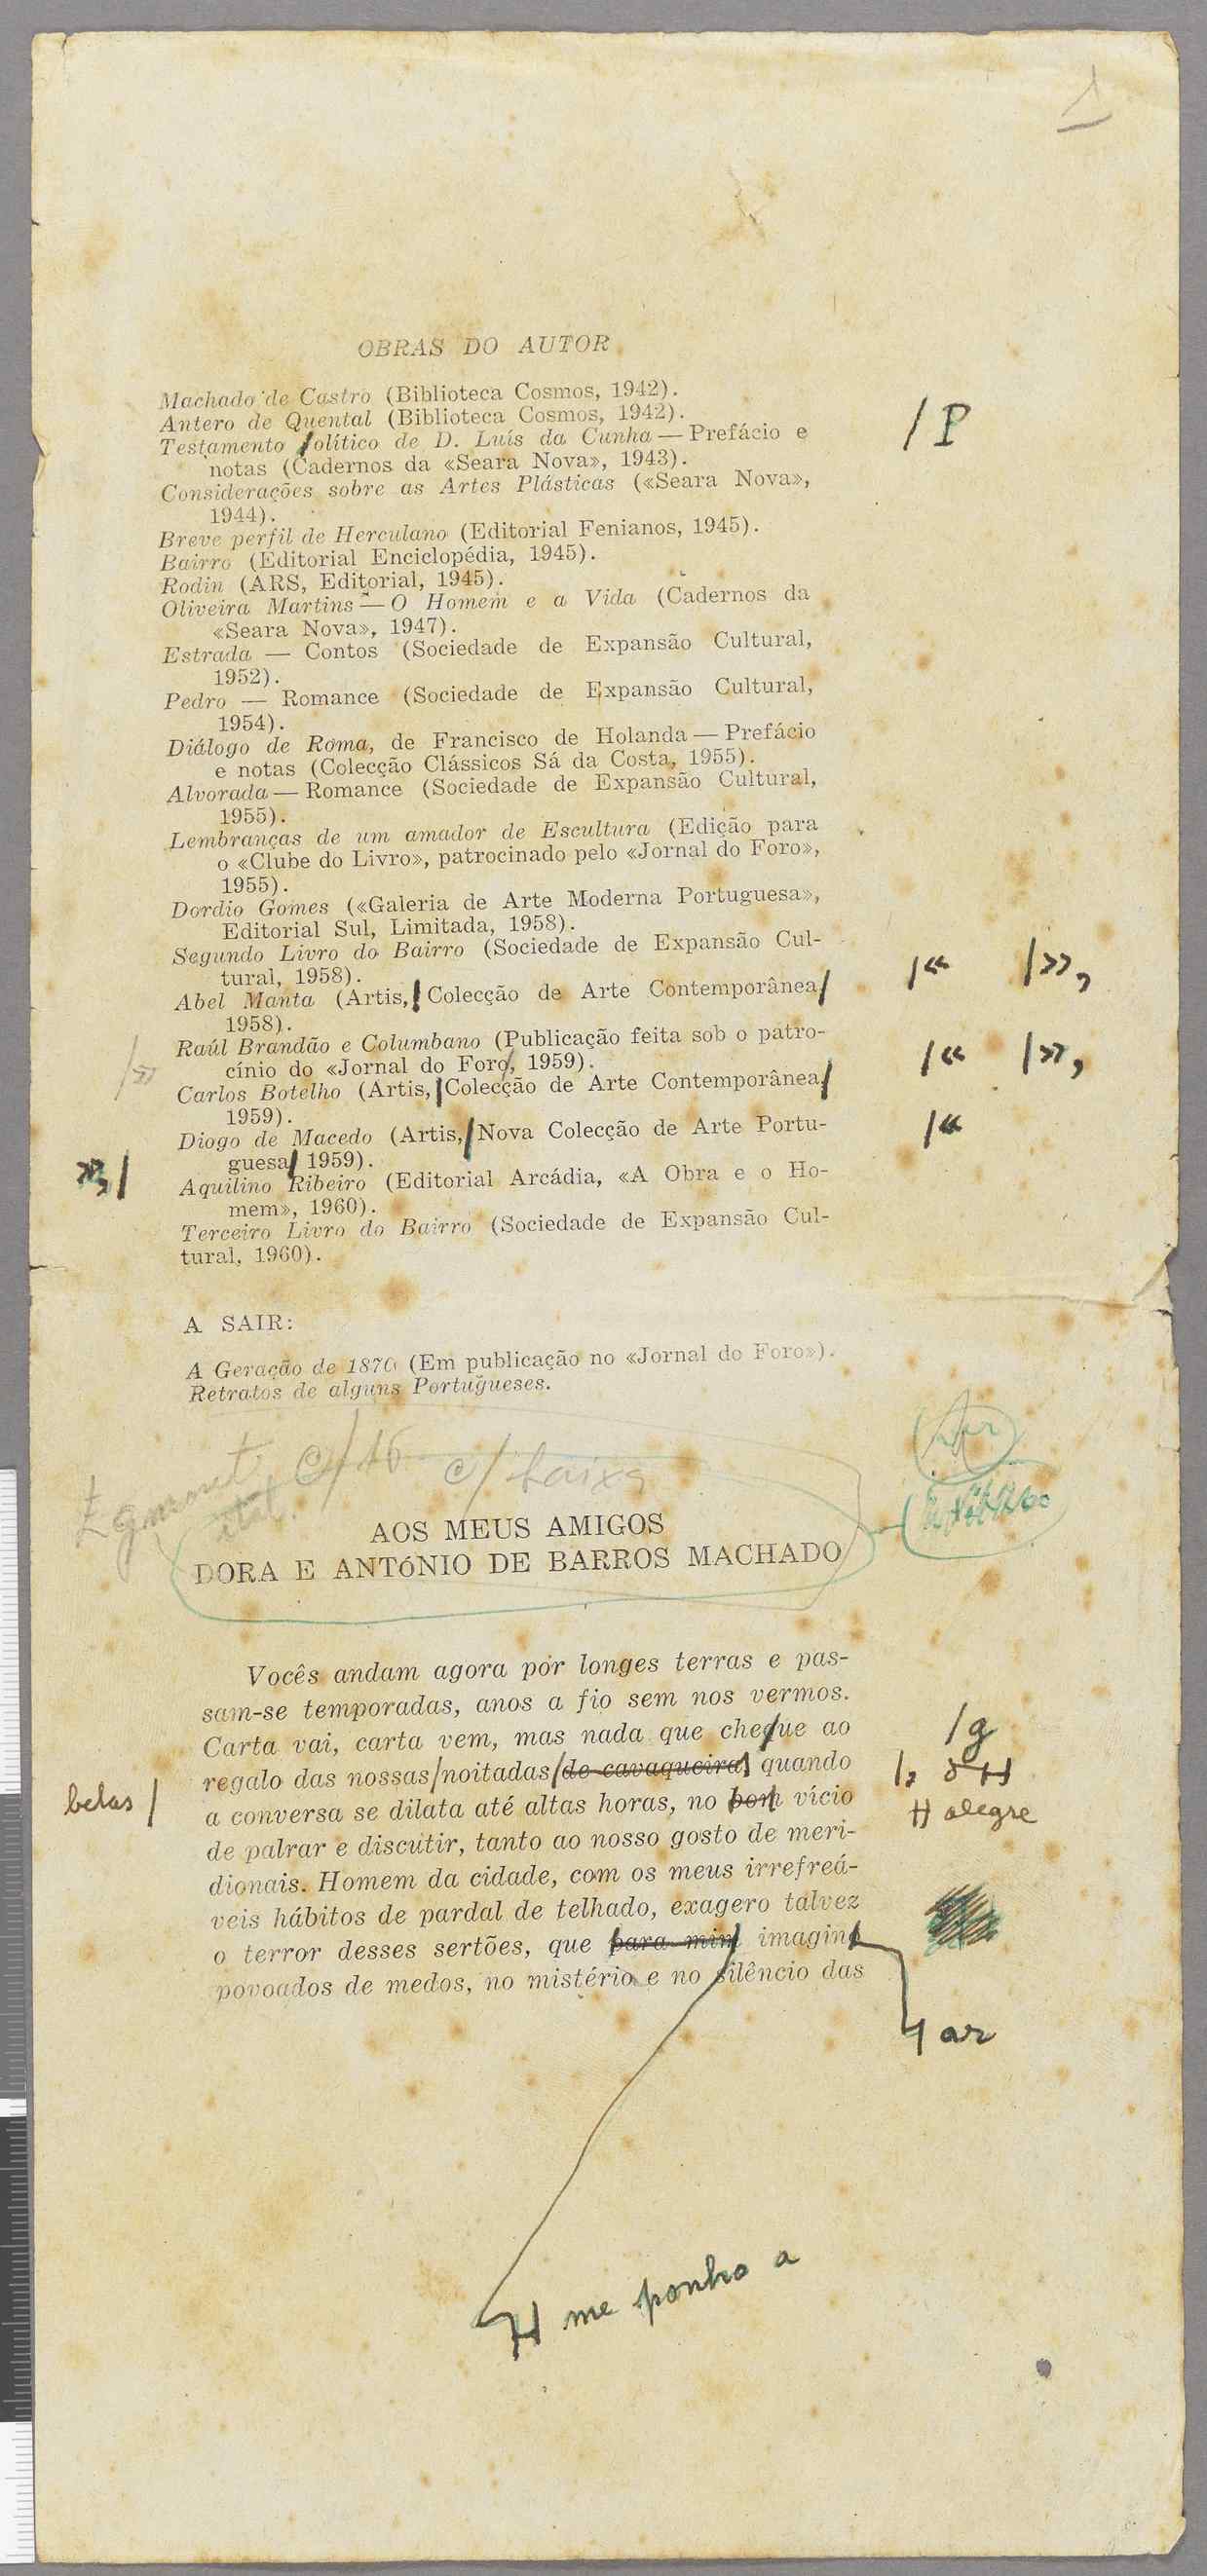 1
OBRAS DO AUTOR
Machado de Castro (Biblioteca Cosmos, 1942).
Antero de Quental (Biblioteca Cosmos, 1942).
Testamento /olítico de D. Luís da Cunha — Prefácio e /P
notas (Cadernos da «Seara Nova», 1943).
Considerações sobre as Artes Plásticas («Seara Nova»,
1944).
Breve perfil de Herculano (Editorial Fenianos, 1945).
Bairro (Editorial Enciclopédia, 1945).
Rodin (ARS, Editorial, 1945).
Oliveira Martins — O Homem e a Vida (Cadernos da
«Seara Nova», 1947).
Estrada — Contos (Sociedade de Expansão Cultural,
1952).
Pedro — Romance (Sociedade de Expansão Cultural,
1954).
Diálogo de Roma, de Francisco de Holanda — Prefácio
e notas (Colecção Clássicos Sá da Costa, 1955).
Alvorada — Romance (Sociedade de Expansão Cultural,
1955).
Lembranças de um amador de Escultura (Edição para
o «Clube do Livro», patrocinado pelo «Jornal do Foro»,
1955).
Dordio Gomes («Galeria de Arte Moderna Portuguesa»,
Editorial Sul, Limitada, 1958).
Segundo Livro do Bairro (Sociedade de Expansão Cul-
tural, 1958).
Abel Manta (Artis,/ Colecção de Arte Contemporânea/ /« /»,
1958).
Raúl Brandão e Columbano (Publicação feita sob o patro-
/» cínio do «Jornal do Foro/, 1959).
Carlos Botelho (Artis,/ Colecção de Arte Contemporânea/ /« /»,
1959).
Diogo de Macedo (Artis,/ Nova Colecção de Arte Portu- /«
»,/ guesa/ 1959).
Aquilino Ribeiro (Editorial Arcádia, «A Obra e o Ho-
mem», 1960).
Terceiro Livro do Bairro (Sociedade de Expansão Cul-
tural, 1960).
A SAIR:
A Geração de 1870 (Em publicação no «Jornal do Foro»).
Retratos de alguns Portugueses.
c/16 c/ baixa
AOS MEUS AMIGOS
DORA E ANTÓNIO DE BARROS MACHADO
Vocês andam agora por longes terras e pas-
sam-se temporadas, anos a fio sem nos vermos.
Carta vai, carta vem, mas nada que che/ue ao /g
regalo das nossas/noitadas/de cavaqueira, quando /,
belas / a conversa se dilata até altas horas, no bom vício H alegre
de palrar e discutir, tanto ao nosso gosto de meri-
dionais. Homem da cidade, com os meus irrefreá-
veis hábitos de pardal de telhado, exagero talvez
o terror desses sertões, que para mim imagino
povoados de medos, no mistério e no silêncio das
H ar
H me ponho a